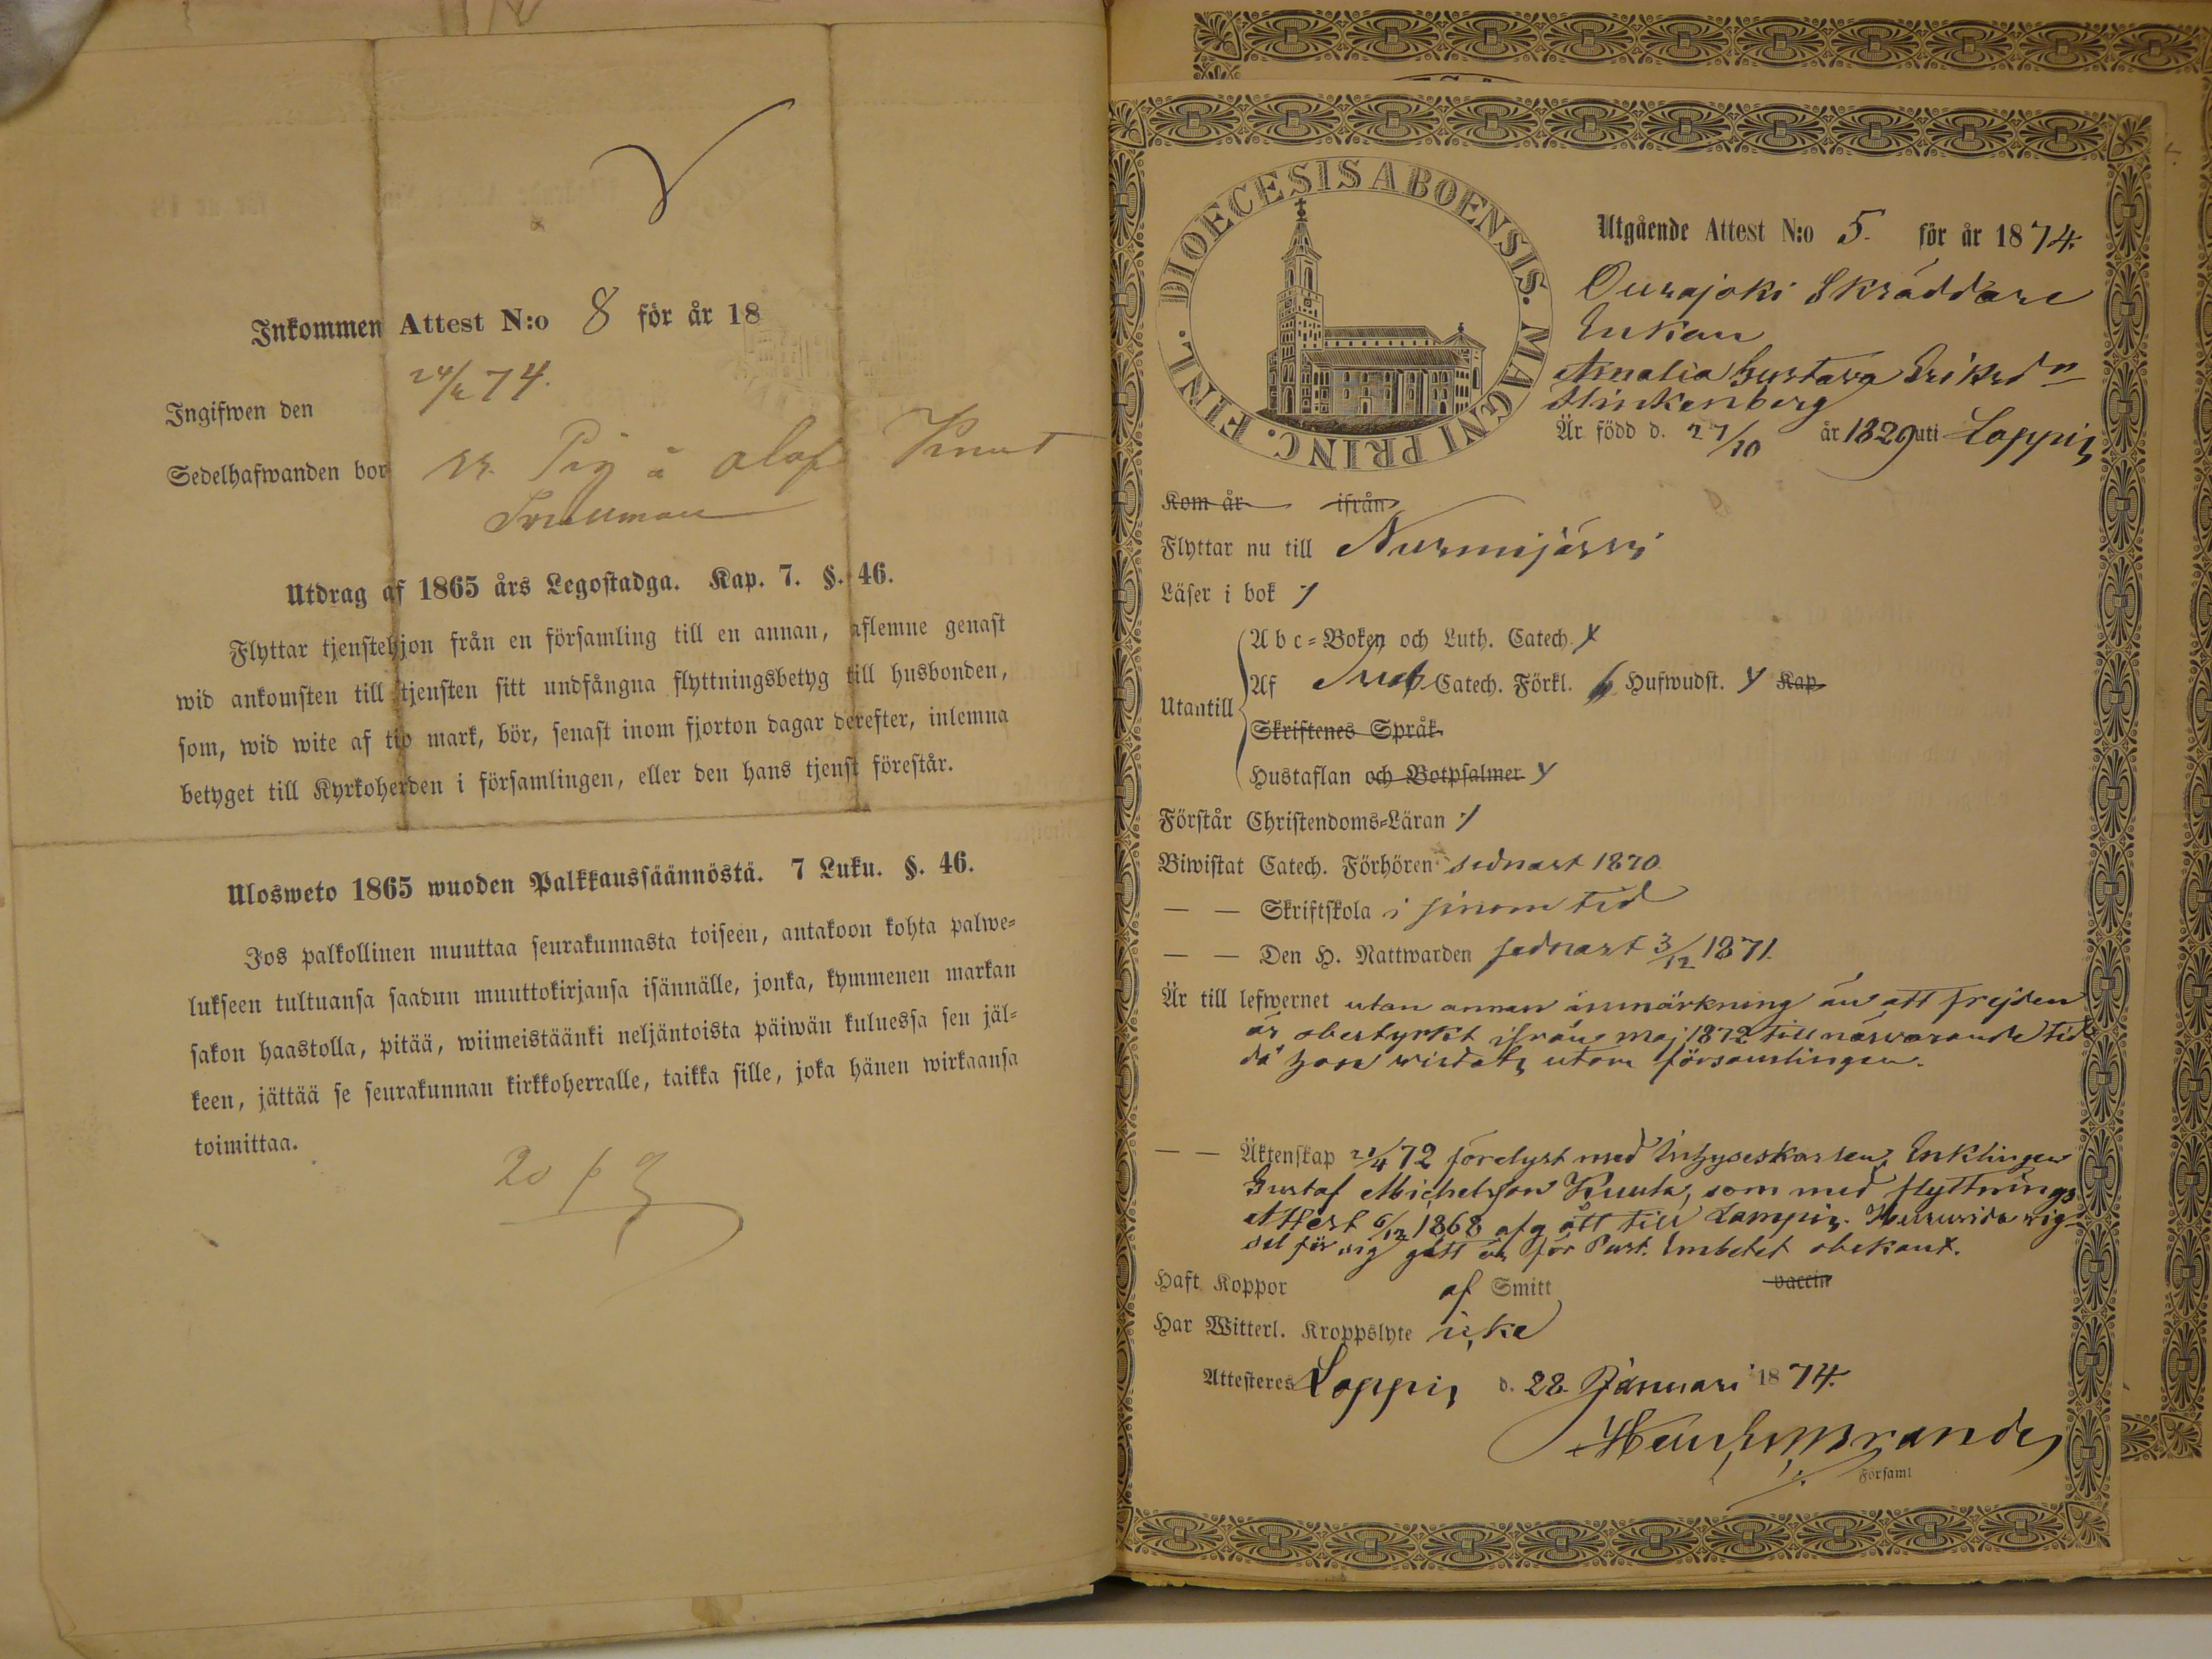 Inkommen Attest N:o 8 för år 18
Ingifwen den 24/2 74.
Sedelhafwanden bor Pig å Olof Knut
Utdrag af 1865 års Legostadga. Kap. 7. §. 46.
Flyttar tjenstehjon från en församling till en annan, aflemne genast
wid ankomsten till tjensten sitt undfångna flyttningsbetyg till husbonden,
som, wid wite af tio mark, bör, senast inom fjorton dagar derefter, inlemna
betyget till Kyrkoherden i församlingen, eller den hans tjenst förestår.
Ulosweto 1865 wuoden Palkkaussäännöstä. 7 Luku. §. 46.
Jos palkollinen muuttaa seurakunnasta toiseen, antakoon kohta palwe-
lukseen tultuansa saadun muuttokirjansa isännälle, jonka, kymmenen markan
sakon haastolla, pitää, wiimeistäänki neljäntoista päiwän kuluessa sen jäl-
keen, jättää se seurakunnan kirkkoherralle, taikka sille, joka hänen wirkaansa
toimittaa.
20 p
DIOECESIS ABOENSIS. MAGNI PRINC. FINL.
Utgående Attest N:o 5. för år 1874.
Ourajoki Skräddare
Enkan
Amalia Gustava Eriksdn
Flinkenberg
Är född d. 27/10 år 1829 uti Loppis
Kom år ifrån
Flyttar nu till Nurmijärvi
Läser i bok
Utantill
Abc-Boken och Luth. Catech.
Af Catech. Förkl. Hufwudst. Kap
Skriftenes Språk
Hustaflan och Botpsalmer
Förstår Christendoms-Läran
Biwistat Catech. Förhören sednast 1870.
— — Skriftskola i sinom tid
— — Den H. Nattwarden sednast 3/12 1871.
Är till lefwernet utan annan anmärkning än att frejden
är obestyrkt ifrån Maj 1872 till närvarande tid
då hon vistats utom församlingen.
— — Äktenskap 21/4 72 förelyst med Inhyseskarlen, Enklingen
Gustaf Michelsson Kuula, som med flyttnings
Attest 6/12 1868 afgått till Lampis. Huruvida vig-
sel för sig gått är för Past. Embetet obekant.
Haft Koppor af Smitt vaccin
Har Witterl. Kroppslyte icke
Attesteres Loppis d. 28. Januari 1874.
Församl